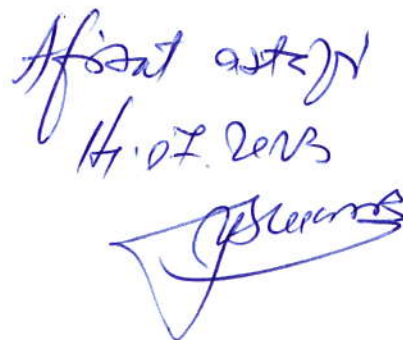 Afisat astazi
14.07.2023